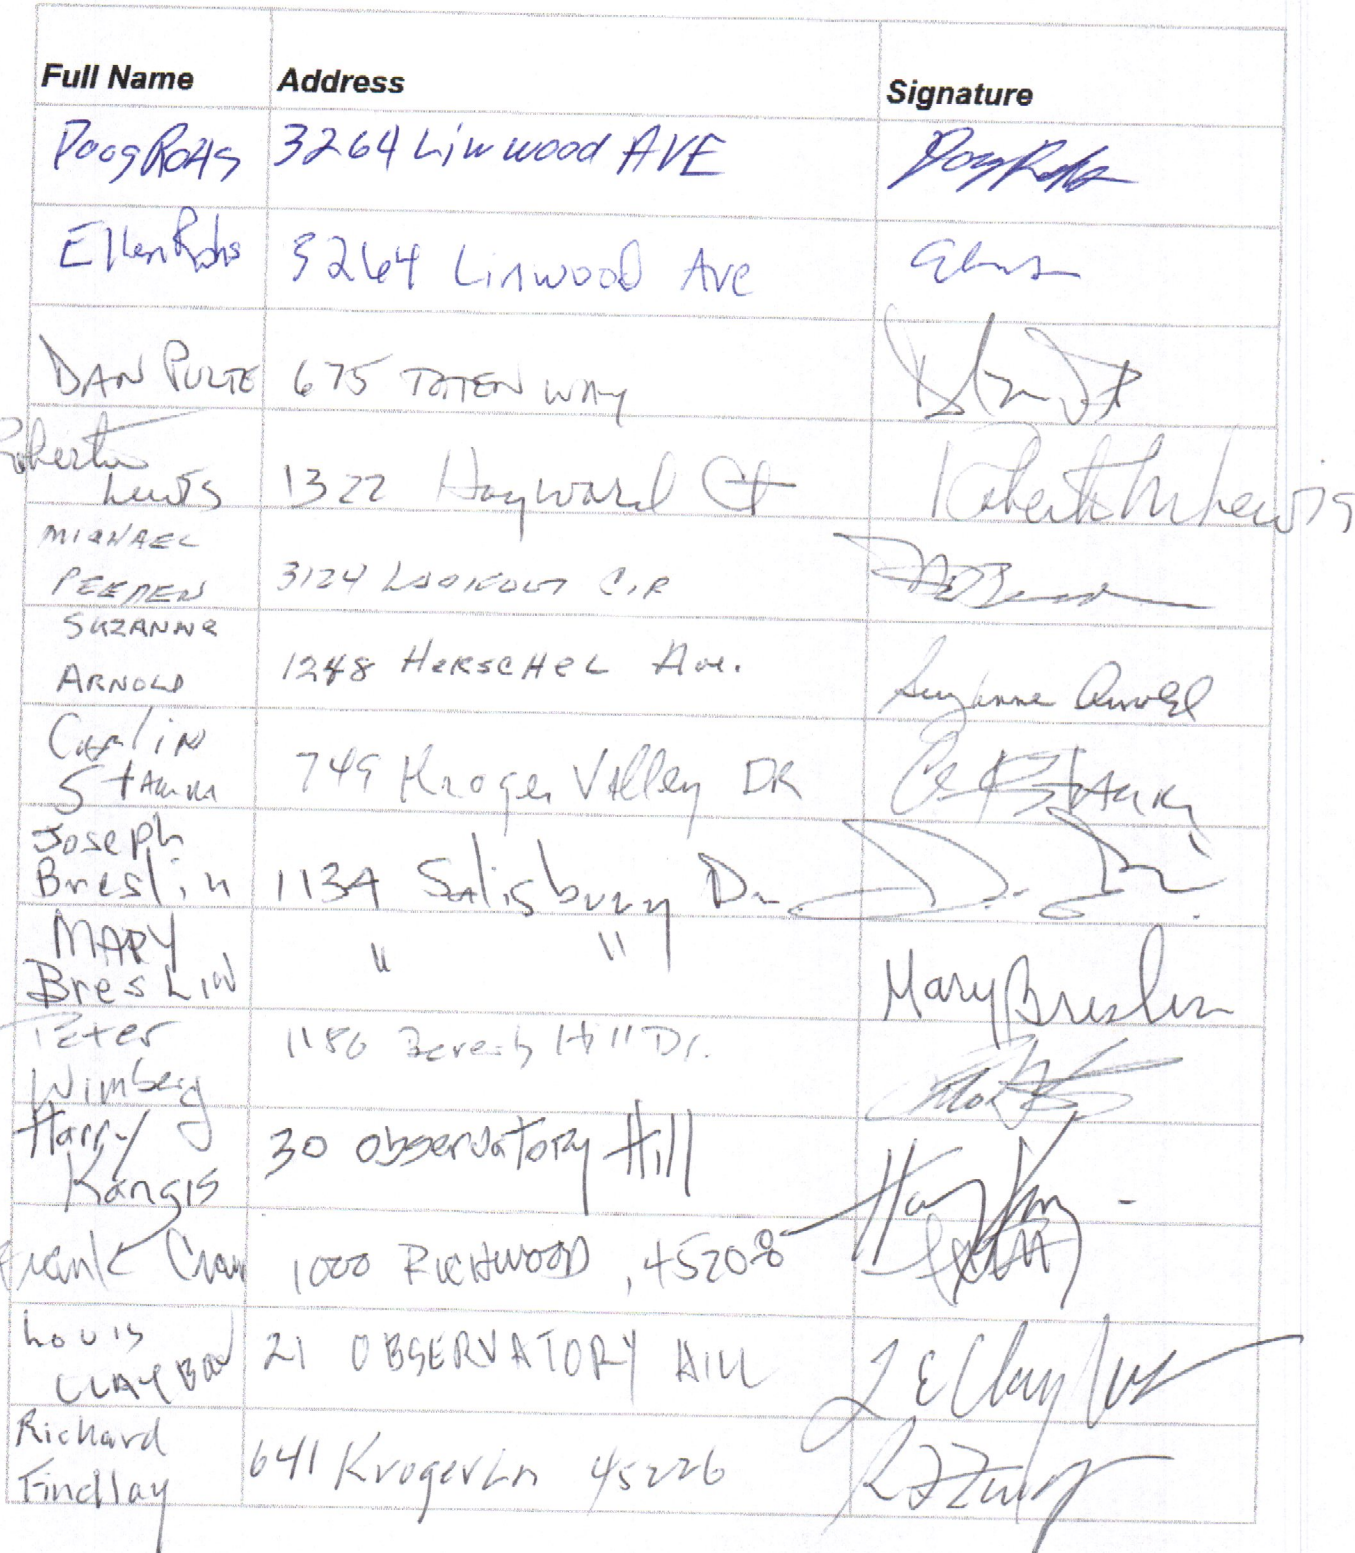 Full Name Address Signature
Doog Rohs 3264 Linwood AVE
Ellen Rohs 3264 Linwood Ave
DAN PULTE 675 TOTEN WAY
Roberta
Lewis 1322 Hayward Ct Roberta M Lewis
MICHAEL
3124 LOOKOUT CIR
SUZANNE
ARNOLD 1248 HERSCHEL Ave. Suzanne Arnold
749 Kroger Valley DR
Joseph
Breslin 1134 Salisbury Dr.
MARY
BresLin " " Mary Breslin
Peter
Wimberg 1180 Beverly Hill Dr.
Harry
Kangis 30 observatory Hill
Frank 1000 RICHWOOD, 45208
Louis
CLAYBON 21 OBSERVATORY HILL
Richard
Findlay 641 Kroger Ln 45226